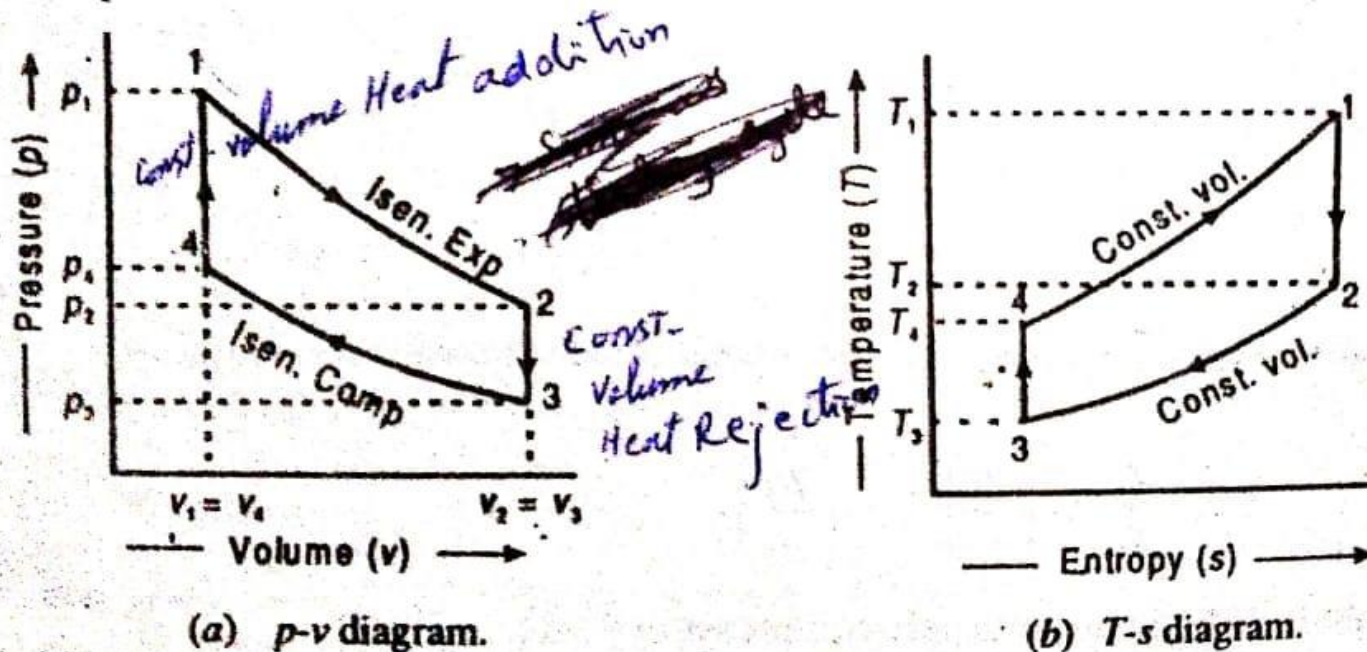 Pressure (p)
p₁
p₄
p₂
p₃
1
4
2
3
const. volume Heat addition
Isen. Exp
Isen. Comp
Const-
volume
Heat Rejection
v₁ = v₄
v₂ = v₃
Volume (v)
(a) p-v diagram.
Temperature (T)
T₁
T₂
T₄
T₃
1
4
2
3
Const. vol.
Const. vol.
Entropy (s)
(b) T-s diagram.